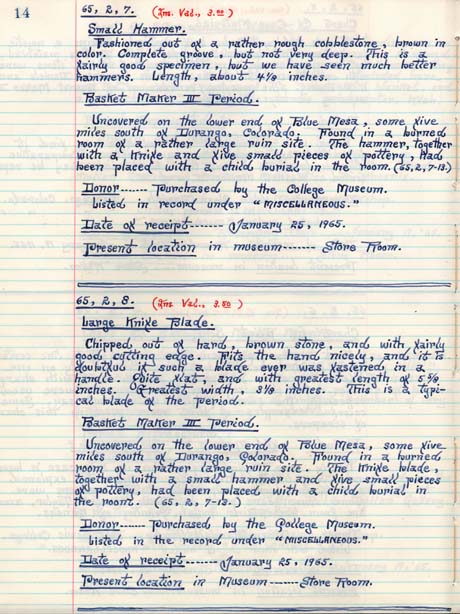 14
65, 2, 7. (Am. Val., 3.00)
Small Hammer.
Fashioned out of a rather rough cobblestone, brown in
color. Complete groove, but not very deep. This is a
fairly good specimen, but we have seen much better
hammers. Length, about 4⅛ inches.
Basket Maker III Period.
Uncovered on the lower end of Blue Mesa, some five
miles south of Durango, Colorado. Found in a burned
room of a rather large ruin site. The hammer, together
with a knife and five small pieces of pottery, had
been placed with a child burial in the room. (65, 2, 7-13.)
Donor------- Purchased by the College Museum.
Listed in record under "MISCELLANEOUS."
Date of receipt------- January 25, 1965.
Present location in museum------- Store Room.
65, 2, 8. (Am. Val., 3.50)
Large Knife Blade.
Chipped out of hard, brown stone, and with fairly
good cutting edge. Fits the hand nicely, and it is
doubtful if such a blade ever was fastened in a
handle. Quite flat, and with greatest length of 5
inches. Greatest width, 3⅛ inches. This is a typi-
cal blade of the period.
Basket Maker III Period.
Uncovered on the lower end of Blue Mesa, some five
miles south of Durango, Colorado. Found in a burned
room of a rather large ruin site. The knife blade,
together with a small hammer and five small pieces
of pottery, had been placed with a child burial in
the room. (65, 2, 7-13.)
Donor------- Purchased by the College Museum.
Listed in the record under "MISCELLANEOUS."
Date of receipt------- January 25, 1965.
Present location in Museum------- Store Room.